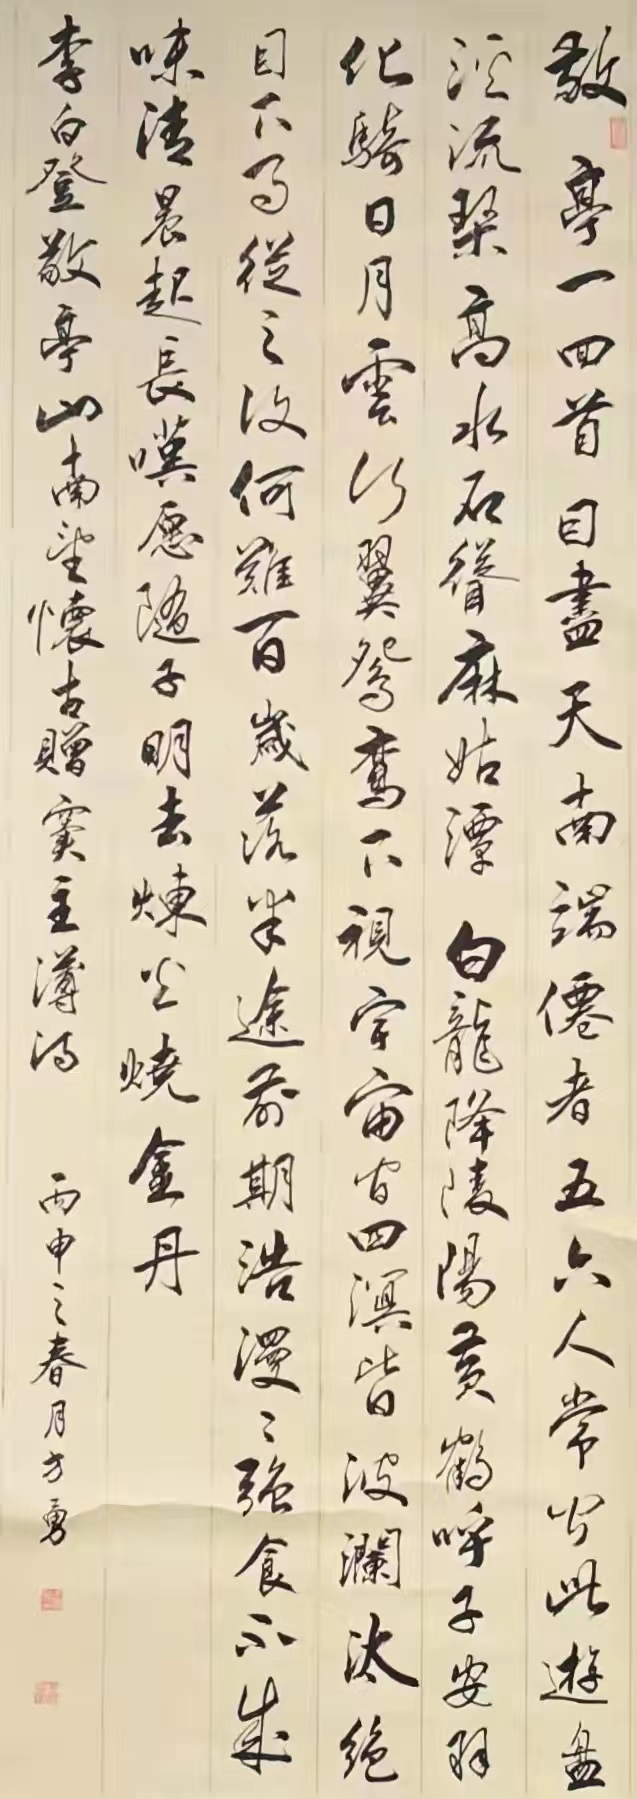 敬亭一回首目盡天南端僊者五六人常聞此遊盤
溪流琴高水石聳麻姑潭白龍降陵陽黃鶴呼子安羽
化騎日月雲行翼鴛鸞下視宇宙間四溟皆波瀾汰絕
目下事從之復何難百歲落半途前期浩漫々強食不成
味清晨起長嘆愿隨子明去煉火燒金丹
李白登敬亭山南望懷古贈竇主簿詩 丙申之春月方勇